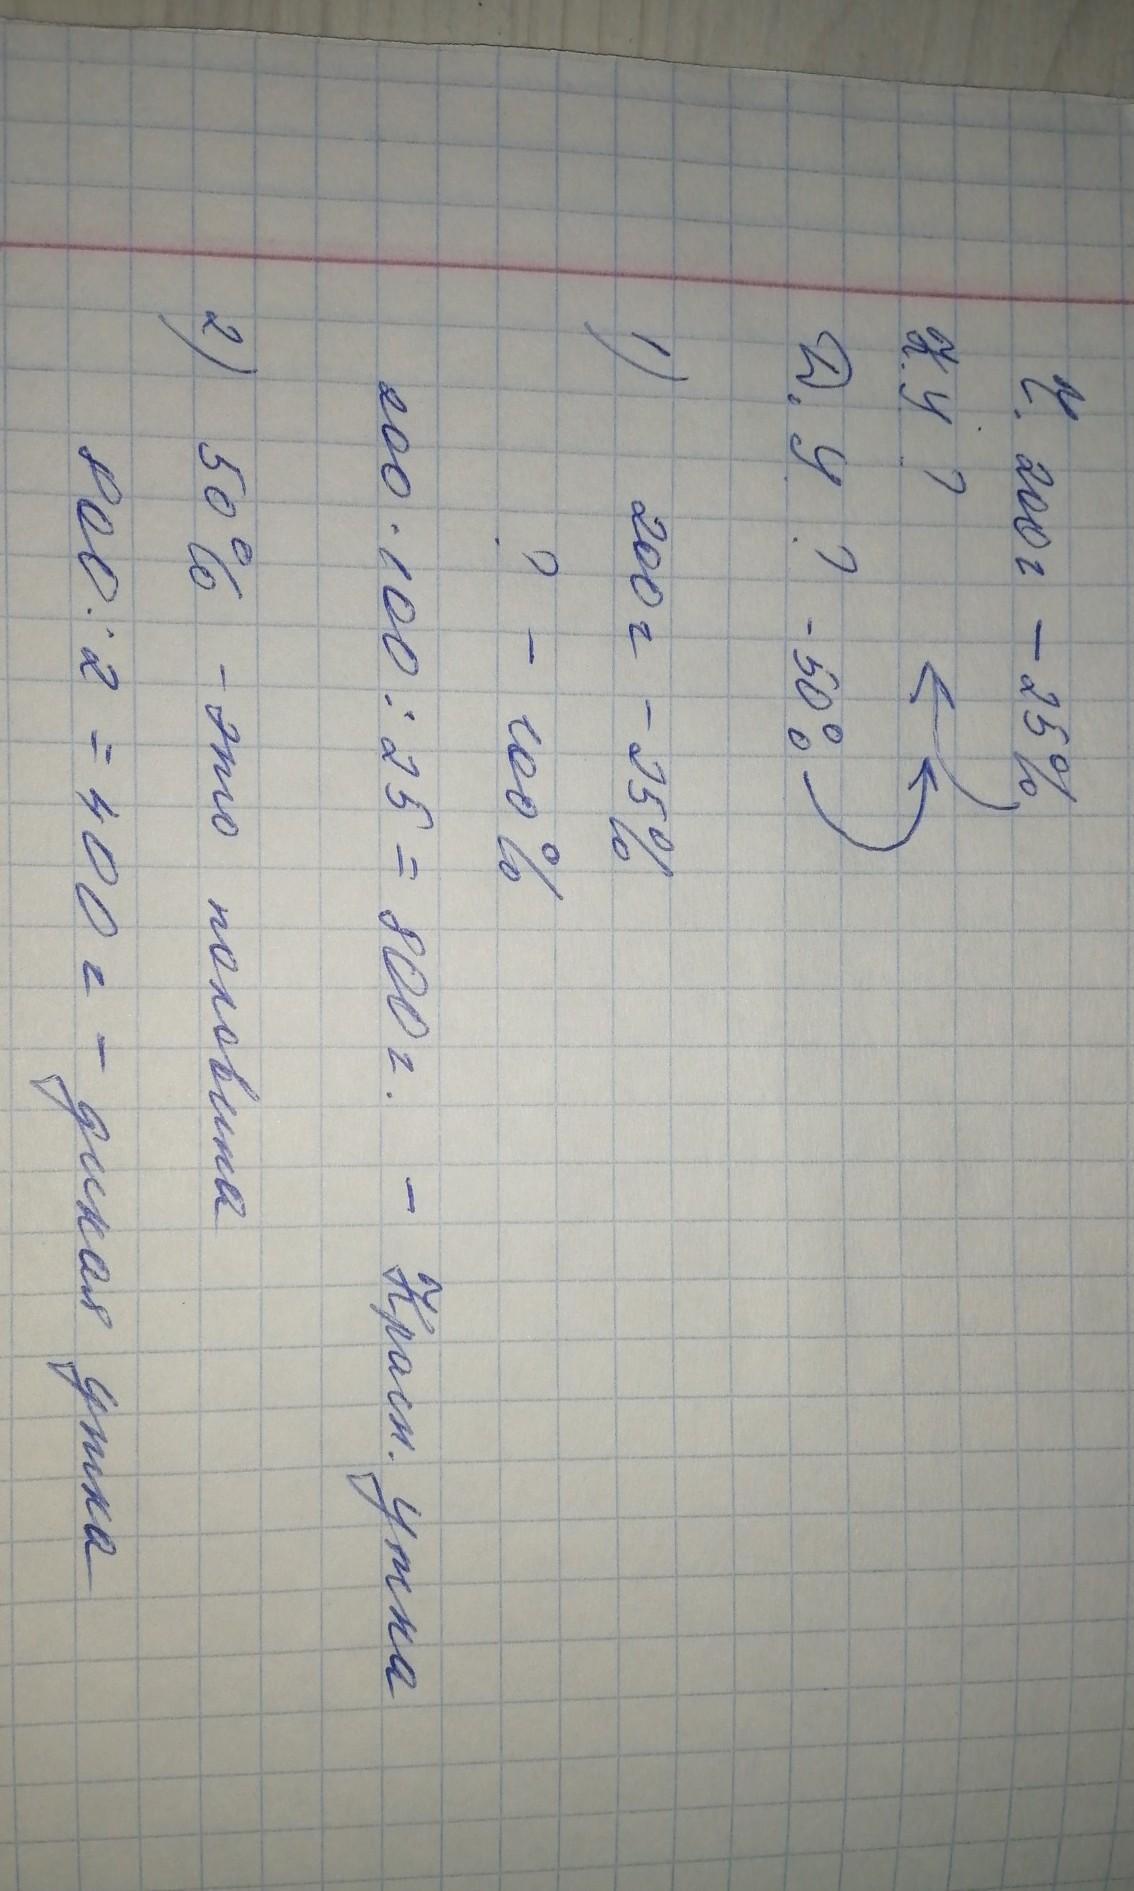 Ч. 200 г - 25%
К. У ?
Д. У ? - 50%
1) 200 г - 25%
? - 100%
200 · 100 : 25 = 800 г. - Красн. утка
2) 50% - это половина
800 : 2 = 400 г - дикая утка